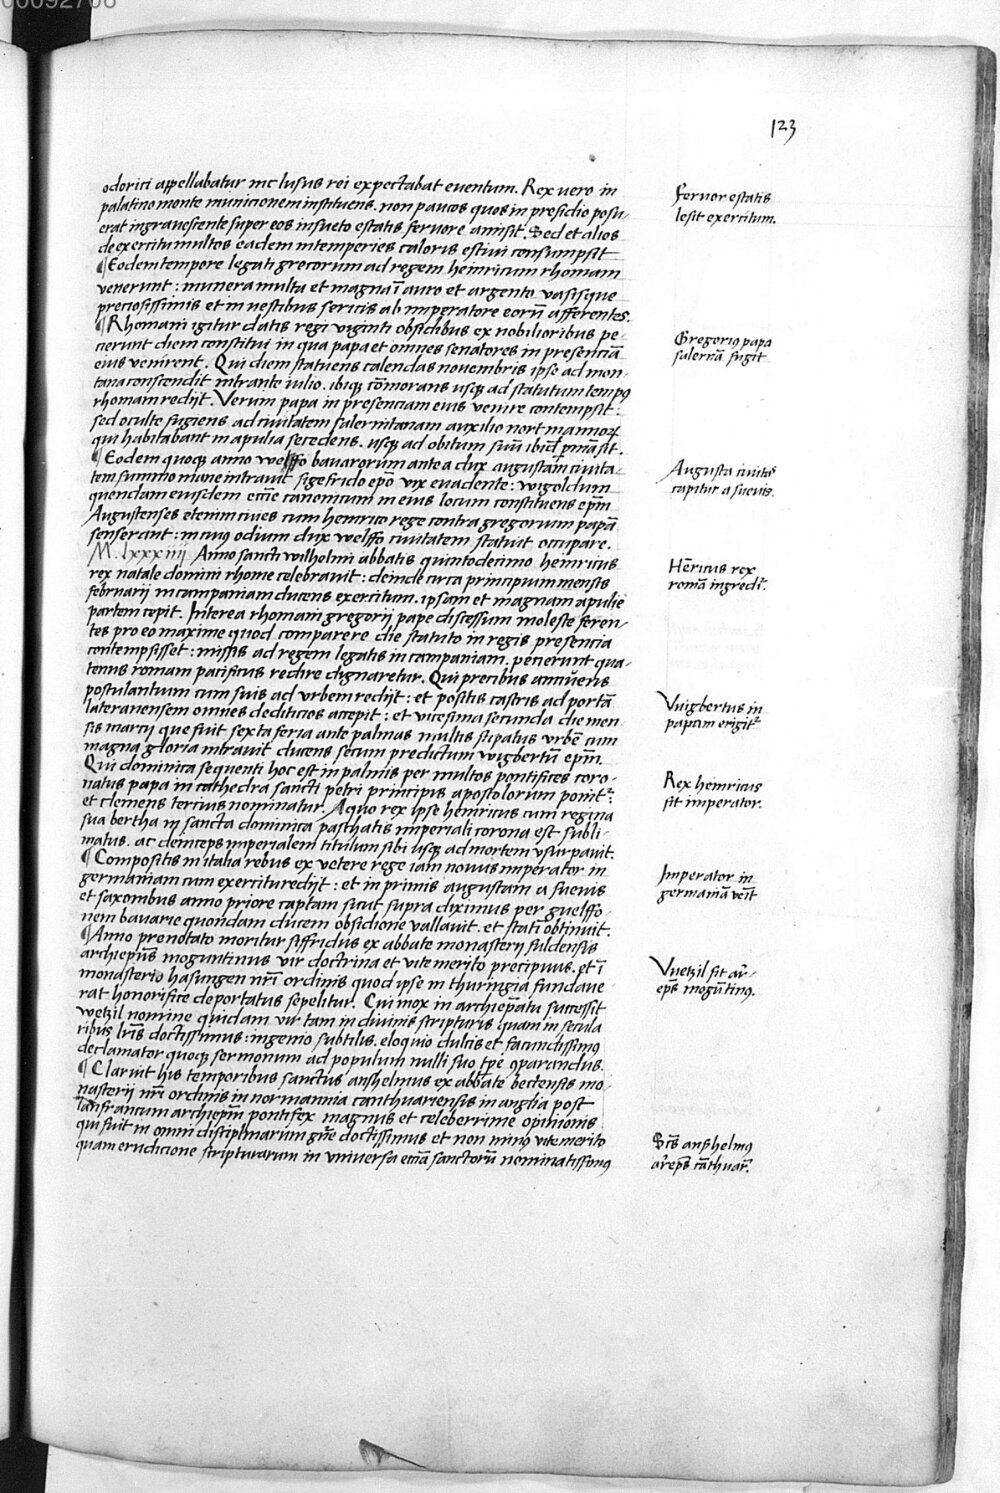 00092706
123
odorici appellabatur inclusus rei expectabat euentum. Rex uero in
palatino monte municionem instituens. non paucos quos in presidio posu-
erat ingrauescente super eos insueto estatis feruore amisit. Sed et alios
de exercitu multos eadem intemperies caloris estiui consumpsit
¶Eodem tempore legati grecorum ad regem heinricum rhomam
venerunt: munera multa et magna ĩ auro et argento vasisque
preciosissimis et in uestibus sericis ab imperatore eorũ afferentes.
¶Rhomani igitur datis regi viginti obsidibus ex nobilioribus pe-
cierunt diem constitui in qua papa et omnes senatores in presenciã
eius venirent. Qui diem statuens calendas nouembris ipse ad mon-
tana conscendit intrante iulio. ibiqꝫ cõmorans usqꝫ ad statutum tempꝰ
rhomam redijt. Verum papa in presenciam eius venire contempsit:
sed oculte fugiens ad ciuitatem salernitanam auxilio nortmannoꝝ
qui habitabant in apulia secedens. usqꝫ ad obitum suũ ibidẽ ꝑmãsit.
¶Eodem quoqꝫ anno welffo bauarorum antea dux augustam ciuita-
tem summo mane intrauit sigefrido epõ vix euadente: wigoldum
quendam eiusdem eccĩe canonicum in eius locum constituens ep̃m
Augustenses etenim ciues cum heinrico rege contra gregorium papã
senserant: in cuiꝰ odium dux welffo ciuitatem statuit occupare.
M. lxxxiiij Anno sancti wilhelmi abbatis quintodecimo heinricus
rex natale domini rhome celebrauit: deinde circa principium mensis
februarij in campaniam ducens exercitum. ipsam et magnam apulie
partem cepit. Interea rhomani gregorij pape discessum moleste feren-
tes pro eo maxime quod comparere die statuto in regis presencia
contempsisset: missis ad regem legatis in campaniam. pecierunt qua-
tenus romam pacificus redire dignaretur. Qui precibus annuens
postulantium cum suis ad vrbem redijt: et positis castris ad portã
lateranensem omnes dediticios accepit: et vicesima secunda die men
sis marcij que fuit sexta feria ante palmas multis stipatus vrbẽ cum
magna gloria intrauit ducens secum predictum wigbertũ ep̃m.
Qui dominica sequenti hoc est in palmis per multos pontifices coro-
natus papa in cathedra sancti petri principis apostolorum ponitᷣ:
et clemens tercius nominatur. A quo rex ipse heinricus cum regina
sua bertha in sancta dominica paschatis imperiali corona est subli-
matus. ac deinceps imperialem titulum sibi usqꝫ ad mortem vsurpauit.
¶Compositis in italia rebus ex vetere rege iam nouus imperator in
germaniam cum exercitu redijt: et in primis augustam a sueuis
et saxonibus anno priore captam sicut supra diximus per guelffo-
nem bauarie quondam ducem obsidione vallauit. et statĩ obtinuit.
¶Anno prenotato moritur siffridus ex abbate monasterij fuldensis
archiep̃us moguntinus vir doctrina et vite merito precipuus. et ĩ
monasterio hasungen nr̃i ordinis quod ipse in thuringia fundaue
rat honorifice deportatus sepelitur. Cui mox in archiep̃atu successit
wetzil nomine quidam vir tam in diuinis scripturis quam in secula
ribus lr̃is doctissimus: ingenio subtilis. eloquio dulcis et facundissimꝰ
declamator quoqꝫ sermonum ad populum nulli suo tp̃e ꝯparandus.
¶Claruit his temporibus sanctus anshelmus ex abbate beccensis mo-
nasterij nr̃i ordinis in normannia canthuariensis in anglia post
lanfrancum archiep̃m pontifex magnus et celeberrime opinionis
qui fuit in omni disciplinarum gñe doctissimus et non minꝰ vite merito
quam erudicione scripturarum in vniuersa eccĩa sanctorũ nominatissimꝰ
Feruor estatis
lesit exercitum.
Gregoriꝰ papa
salernã fugit
Augusta ciuitas
capitur a sueuis.
Hẽricus rex
romã ingreditᷣ.
Vuigbertus in
papam erigitᷣ
Rex heinricus
fit imperator.
Imperator in
germaniã veĩt
Vuetzil fit ar̃-
ep̃s mogũtinꝰ.
Sc̃s anshelmꝰ
ar̃ep̃s cãthuar̃.